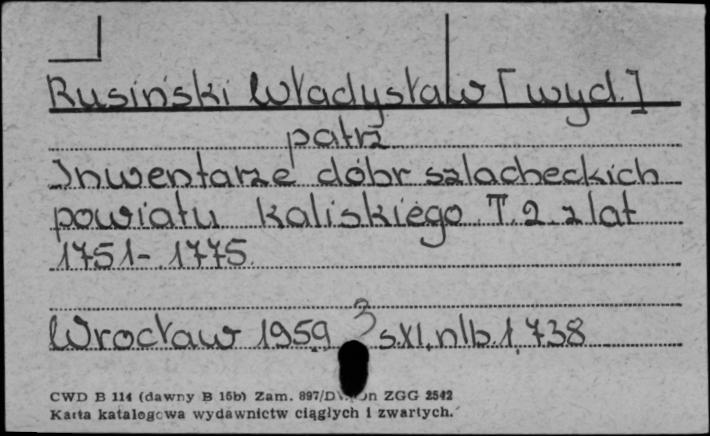 Rusiński Władysław [wyd.]
patrz
Inwentarze dóbr szlacheckich
powiatu kaliskiego. T. 2. z lat
1751-1775.
Wrocław 1959 s. XI, nlb. 1, 738
CWD B 114 (dawny B 15b) Zam. 897/D ZGG 2542
Karta katalogowa wydawnictw ciągłych i zwartych.